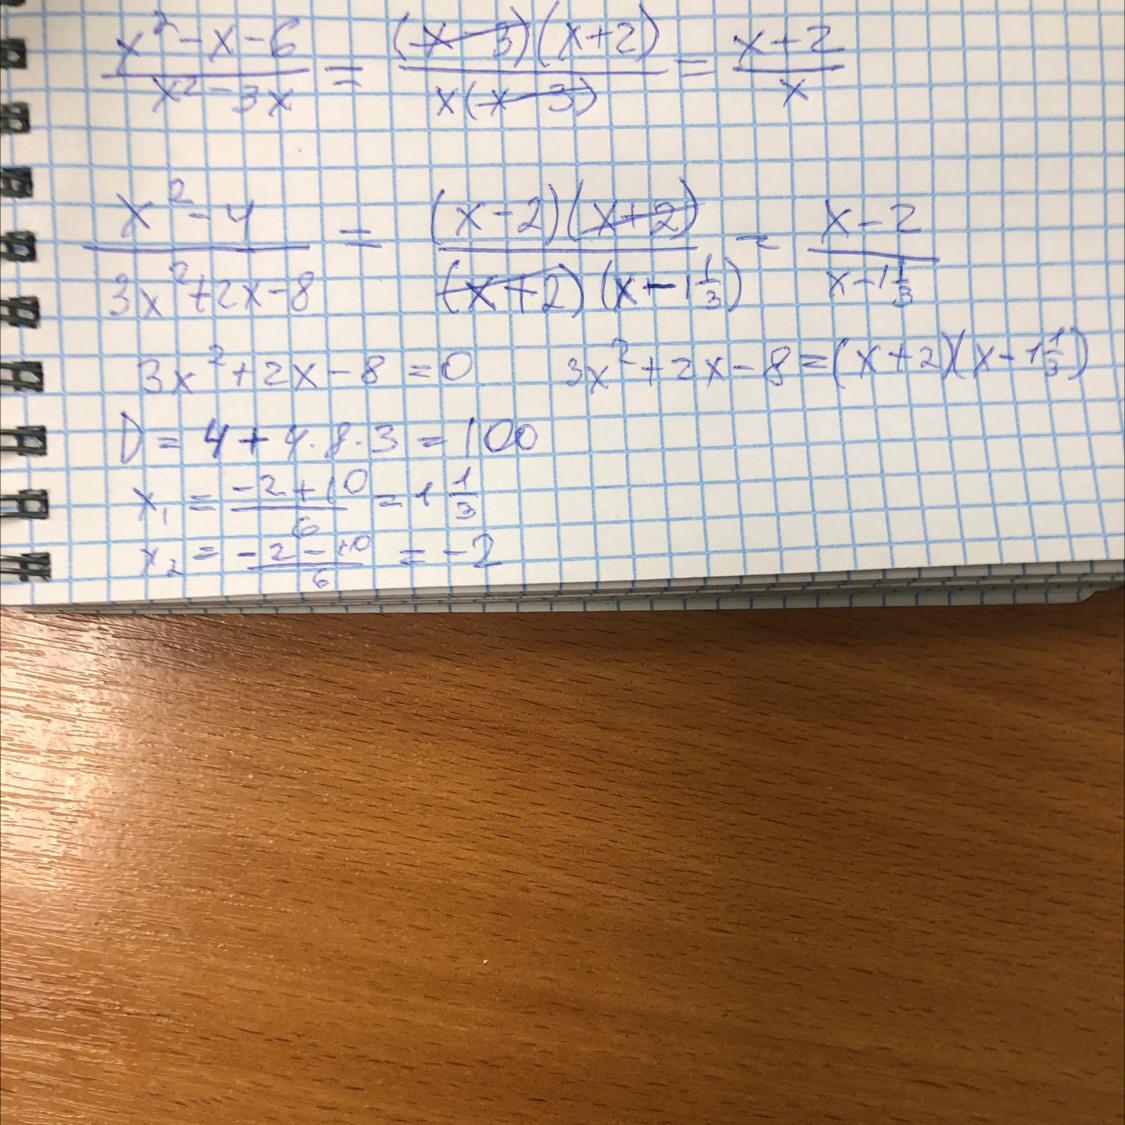 x² - x - 6 / x² - 3x = (x - 3)(x + 2) / x(x - 3) = x + 2 / x
x² - 4 / 3x² + 2x - 8 = (x - 2)(x + 2) / (x + 2)(x - 1 1/3) = x - 2 / x - 1 1/3
3x² + 2x - 8 = 0 3x² + 2x - 8 = (x + 2)(x - 1 1/3)
D = 4 + 4 · 8 · 3 = 100
x₁ = -2 + 10 / 6 = 1 1/3
x₂ = -2 - 10 / 6 = -2